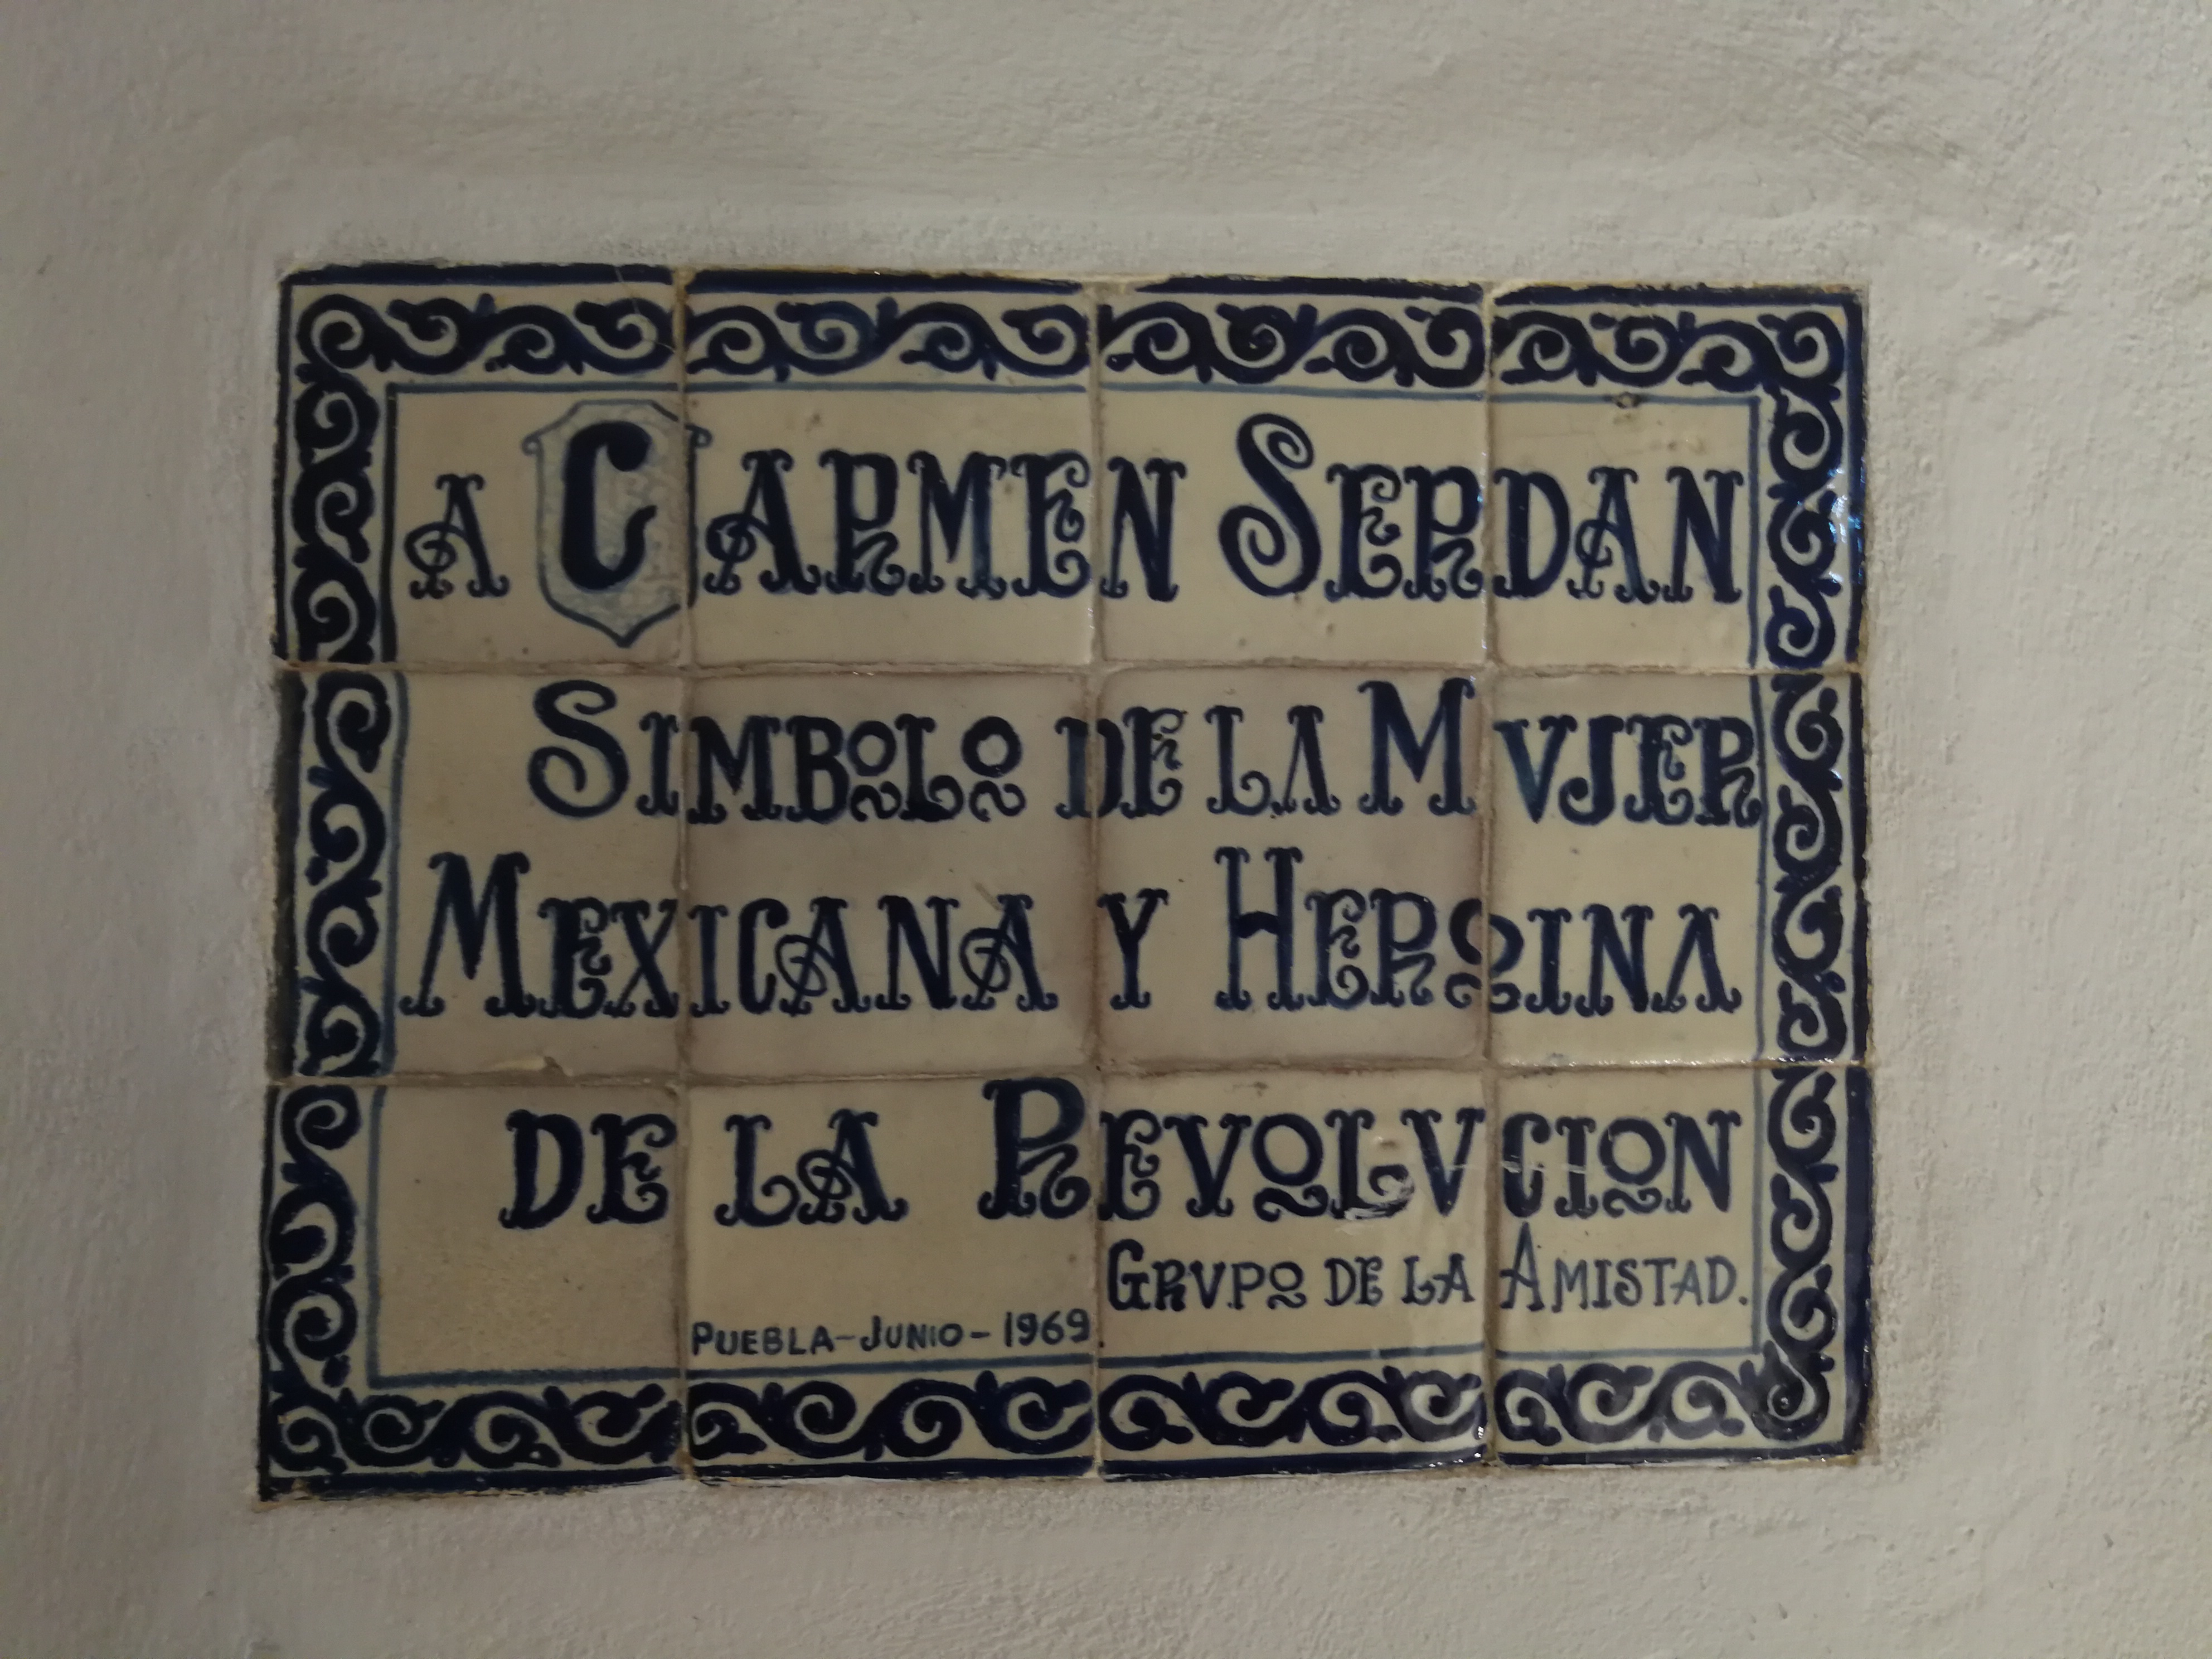 A CARMEN SERDAN
SIMBOLO DE LA MVJER
MEXICANA Y HEROINA
DE LA REVOLVCION
GRVPO DE LA AMISTAD.
PUEBLA-JUNIO-1969